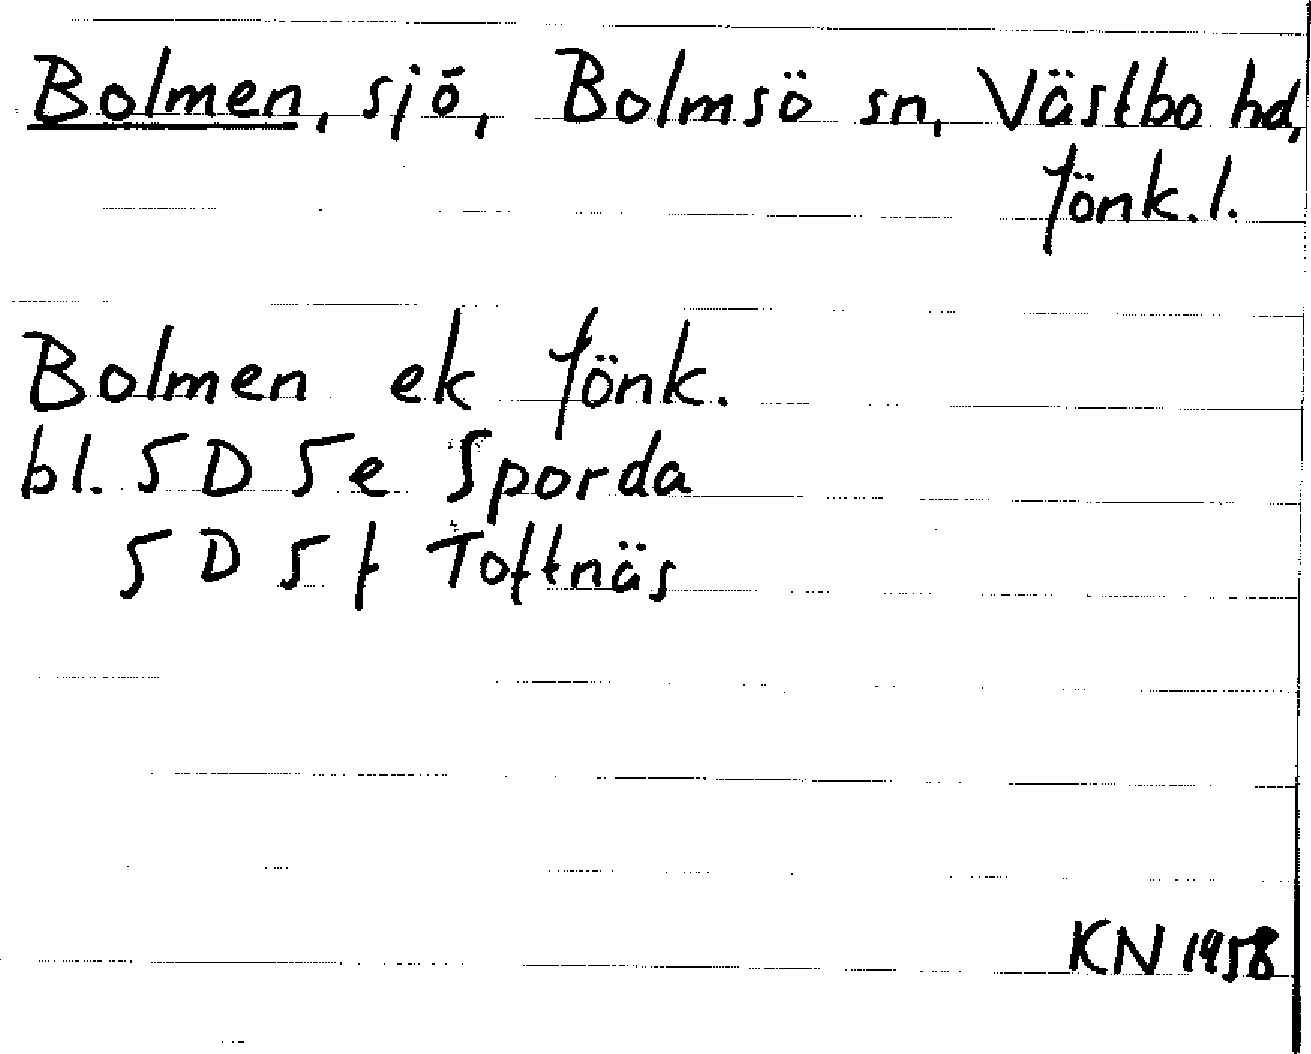 Bolmen, sjö, Bolmsö sn, Västbo hd,
Jönk. l.
Bolmen ek Jönk.
bl. 5 D 5e Sporda
5 D 5 f Toftnäs
KN 1958